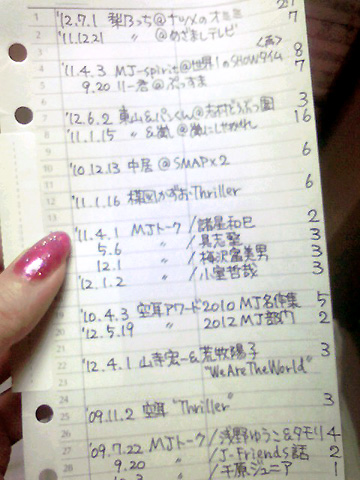 21
1 '12.7.1 梨刀っち@ナツメのオミミ 7
2 '11.12.21 〃 @めざましテレビ
3 <高> 8
4 '11.4.3 MJ-spirit@世界1のSHOWタイム 7
5 9.20 11-君@ぷっすま
6 3
7 '12.6.2 東山&パンくん@志村どうぶつ園 16
8 '11.1.15 〃 &嵐@嵐にしやがれ
9 6
10 '10.12.13 中居@SMAP×2
11 6
12 '11.1.16 楳図かずお・Thriller
13
'11.4.1 MJトーク/諸星和己 2
5.6 〃 /具志堅 3
12.1 〃 /梅沢富美男 3
'12.1.2 〃 /小室哲哉 3
19 '10.4.3 空耳アワード2010 MJ名作集 5
20 '12.5.19 〃 2012 MJ部門 2
21
22 '12.4.1 山寺宏一&荒牧陽子 3
23 "WeAreTheWorld"
24
25 '09.11.2 空耳 "Thriller" 3
26
27 '09.7.22 MJトーク/浅野ゆう子&タモリ 4
28 9.20 〃 /J-Friends話 2
〃 /千原ジュニア 1